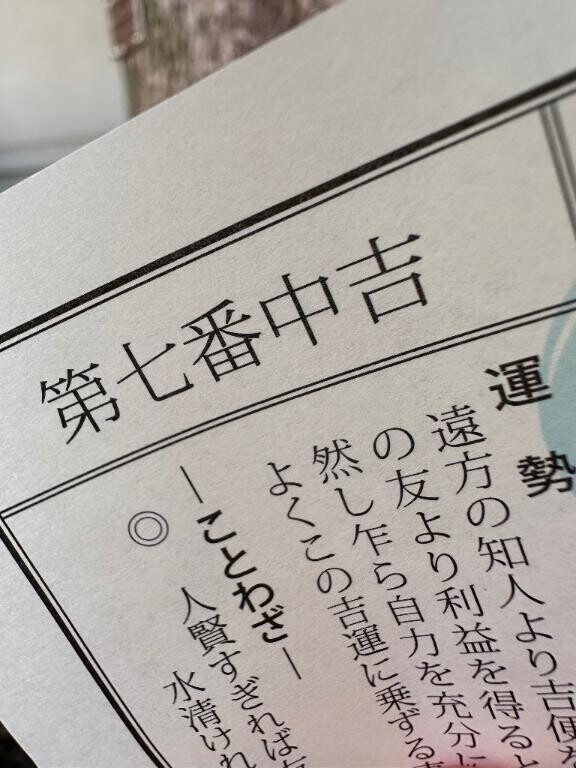 第七番中吉
運勢
遠方の知人より吉便を
の友より利益を得ると
然し乍ら自力を充分に
よくこの吉運に乗ずる
―ことわざ―
◎
人賢すぎれば友
水清けれ